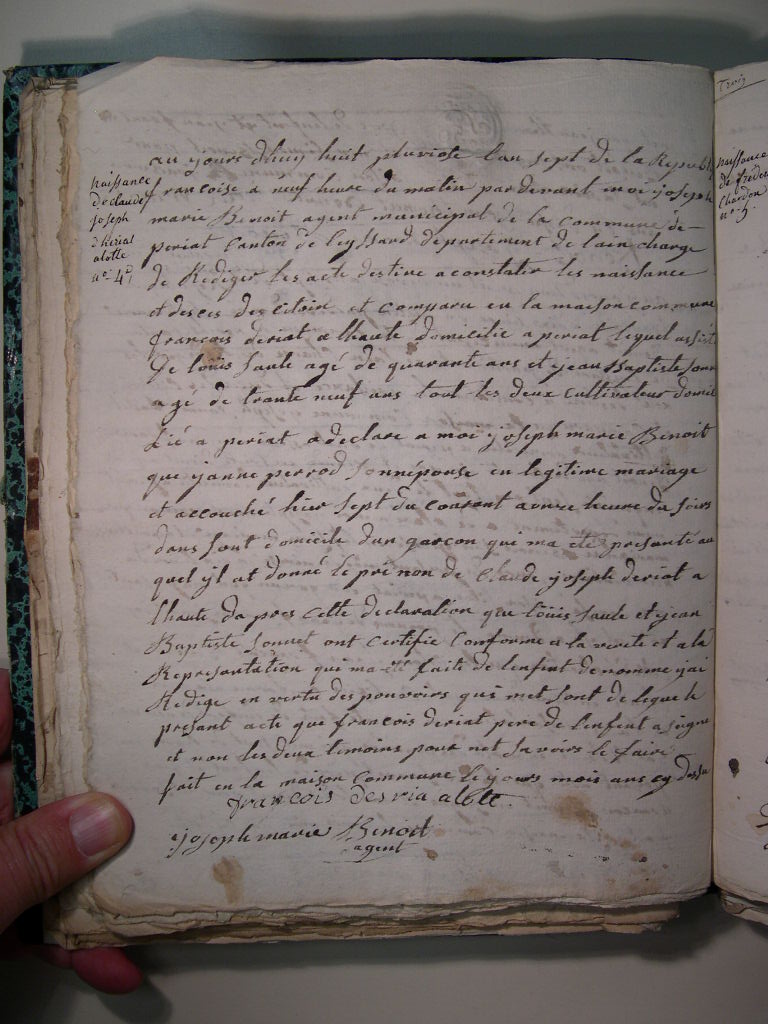 naissance
de claude
joseph
Dhériat
alotte
no 4
au yours dhuy huit pluviose lan sept de la Republi
francoise a neuf heure du matin par devant moi joseph
marie Benoit agent municipal de la commune de
periat Canton de leyssard departement de lain charge
de Rediger les acte destine a constater les naissance
et deces des citoin et comparu en la maison commune
francois deriat a lhaute domicilie a periat lequel assiste
de loüis Saule agé de quarante ans et jean Baptiste Sonn
agé de trante neuf ans tout les deux cultivateur domi
lié a periat a declare a moi joseph marie Benoit
que yanne perrod sonnéponse en legitime mariage
et accouché hier sept du courant a onze heure du soirs
dans sont domicile dun garçon qui ma eté presanté au
quel yl at donné le prénon de Claude joseph deriat a
lhaute da pres cette declaration que loüis Saule et jean
Baptiste Sonnet ont certifié Conforme a la verite et a la
Representation qui ma été faite de lenfent denommé jai
Redige en vertu des pouvoirs qui met sont delegue le
presant acte que francois deriat pere de lenfent a signe
et non les deux temoins pour net savoirs le faire
fait en la maison Commune le yours mois ans cy dessu
francois desria alotte
joseph marie Benoit
agent
Trois
naissance
de frede
Chardon
no 5